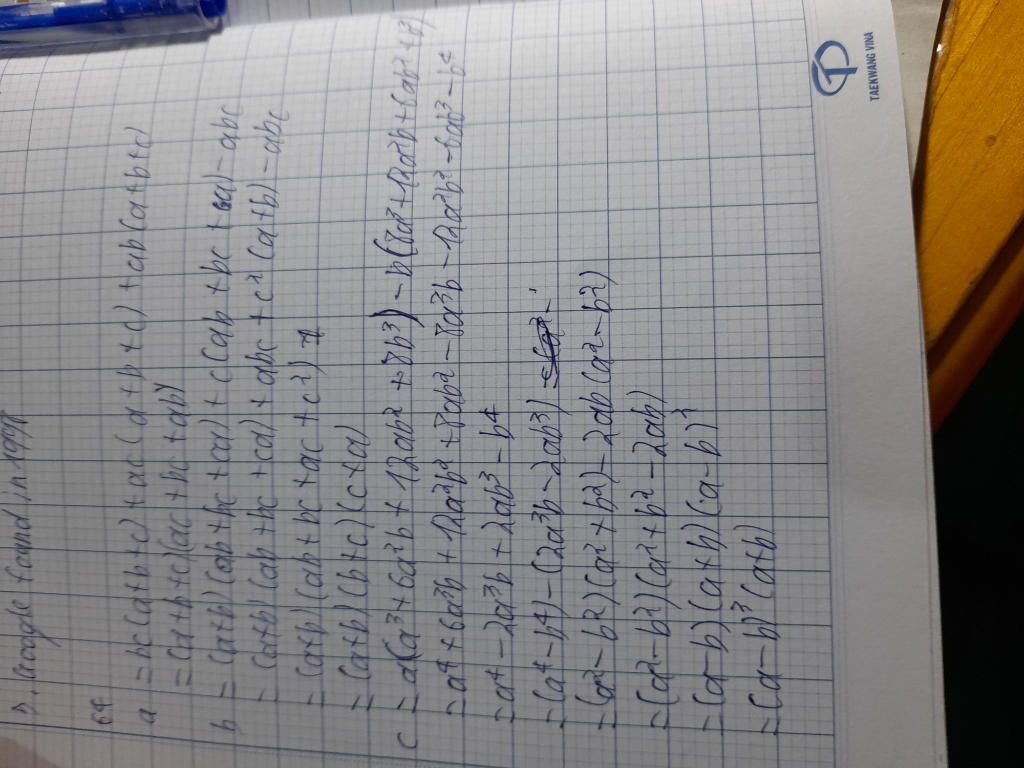 D. Google
64
a = bc(a+b+c) + ac(a+b+c) + ab(a+b+c)
= (a+b+c)(ac+bc+ab)
b = (a+b)(ab+bc+ca) + c(ab+bc+ca) - abc
= (a+b)(ab+bc+ca) + abc + c²(a+b) - abc
= (a+b)(ab+bc+ac+c²)
= (a+b)(b+c)(c+a)
c = a(a³+6a²b+12ab²+8b³) - b(8a³+12a²b+6ab²+b³)
= a⁴+6a³b+12a²b²+8ab³-8a³b-12a²b²-6ab³-b⁴
= a⁴-2a³b+2ab³-b⁴
= (a⁴-b⁴)-(2a³b-2ab³)
= (a²-b²)(a²+b²)-2ab(a²-b²)
= (a²-b²)(a²+b²-2ab)
= (a-b)(a+b)(a-b)²
= (a-b)³(a+b)
TAEKWANG VINA